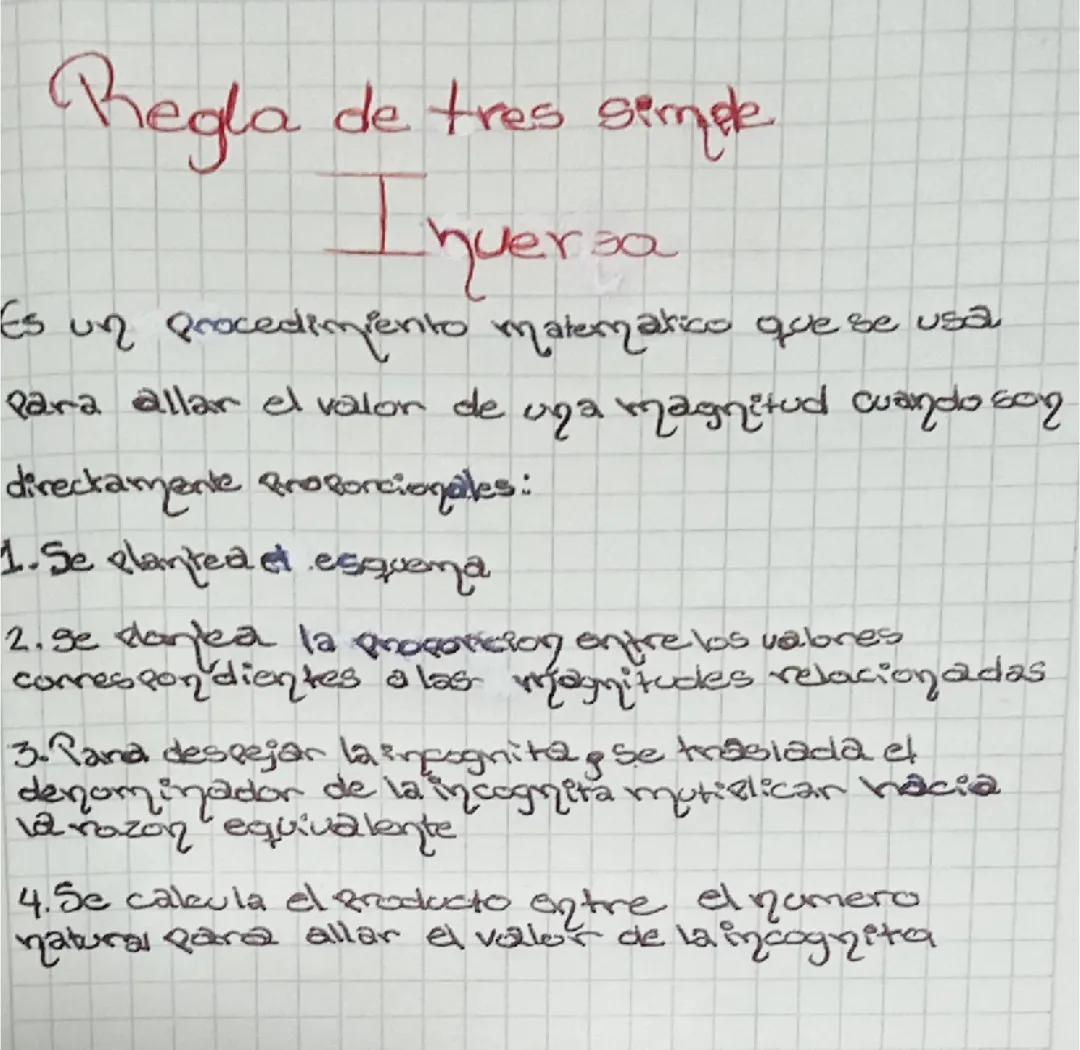 Regla de tres simple
Inversa
Es un procedimiento matematico que se usa
para allar el valor de una magnitud cuando son
directamente proporcionales:
1. Se plantea el esquema
2. se plantea la proporcion entre los valores
correspondientes a las magnitudes relacionadas
3. Para despejar la incognita, se traslada el
denominador de la incognita mutiplicar hacia
la razon equivalente
4. Se calcula el producto entre el numero
natural para allar el valor de la incognita